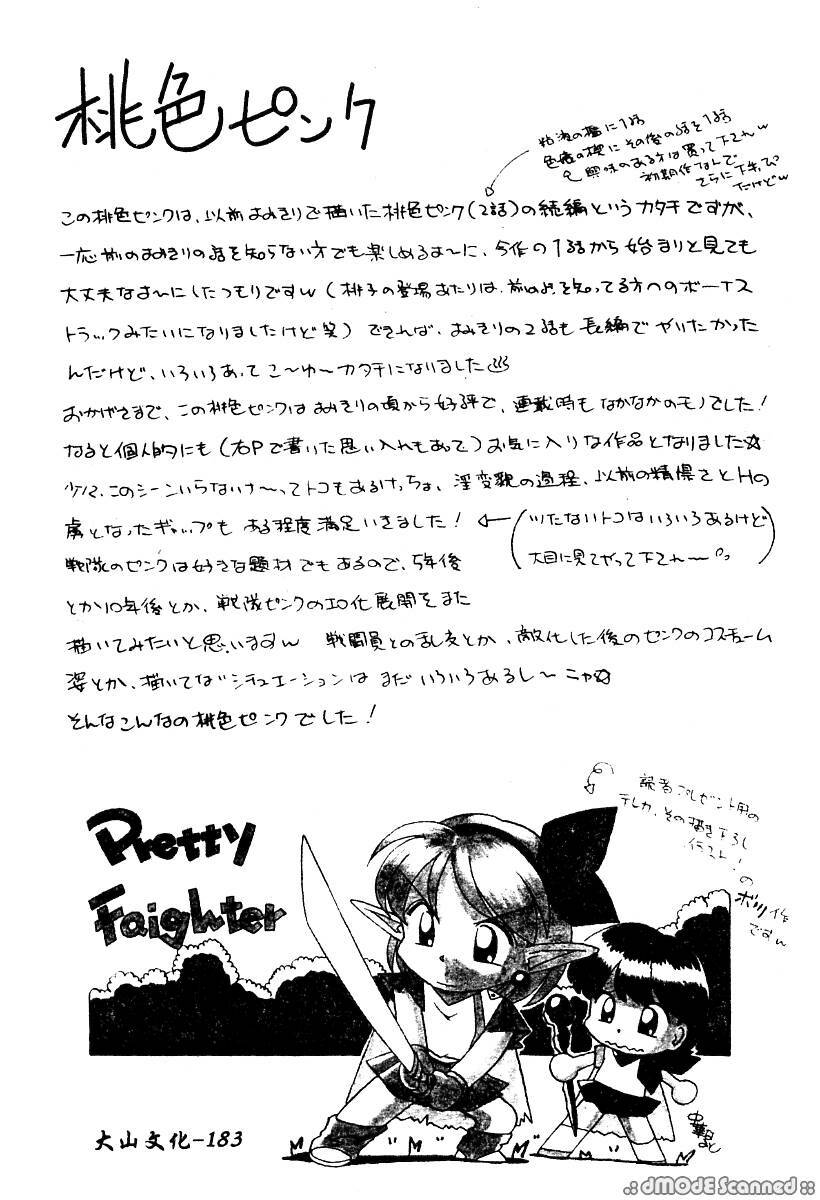 桃色ピンク
粘液の檻に1話
色痕の楔にその後の話を1話
興味のある方は買って下されw
初期作なんで
さらに下手っぴ
だけどw
この桃色ピンクは、以前よみきりで描いた桃色ピンク(2話)の続編というカタチですが、
一応前のよみきりの話を知らない方でも楽しめるよ〜に、今作の1話から始まりと見ても
大丈夫なよ〜にしたつもりですw(桃子の登場あたりは、前のを知ってる方へのボーナス
トラックみたいになりましたけど笑)できれば、よみきりの2話も長編でやりたかった
んだけど、いろいろあってこ〜ゆ〜カタチになりました
おかげさまで、この桃色ピンクはよみきりの頃から好評で、連載時もなかなかのモノでした!
なると個人的にも(右Pで書いた思い入れもあって)お気に入りな作品となりました☆
少々、このシーンいらないな〜ってトコもあるけっちょ、淫変貌の過程、以前の精悍さとHの
虜となったギャップもある程度満足いきました!
ツたないトコはいろいろあるけど
大目に見てやって下され〜
戦隊のピンクは好きな題材でもあるので、5年後
とか10年後とか、戦隊ピンクのエロ化展開をまた
描いてみたいと思いますw 戦闘員との乱交とか、敵化した後のピンクのコスチューム
姿とか、描いてないシチュエーションはまだいろいろあるし〜ニャ☆
そんなこんなの桃色ピンクでした!
読者プレゼント用の
テレカ、その描き下ろし
イラスト!
のボツ作
ですw
Pretty
Faighter
中華なると
大山文化-183
.:: dMODE Scanned ::.